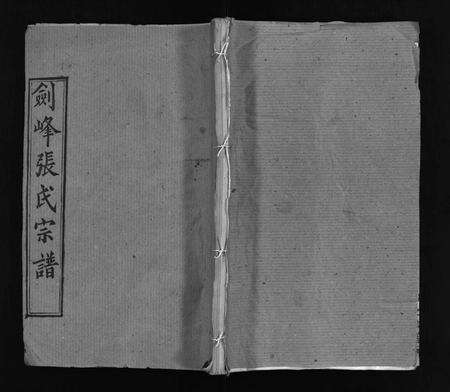 劍峰張氏宗譜